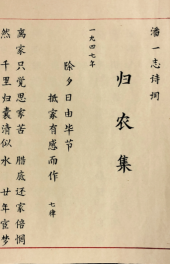 潘一志诗词
归农集
一九四七年
除夕日由毕节
抵家有感而作 七律
离家只觉思家苦 腊底还家倍惘
然 千里归囊清似水 廿年宦梦